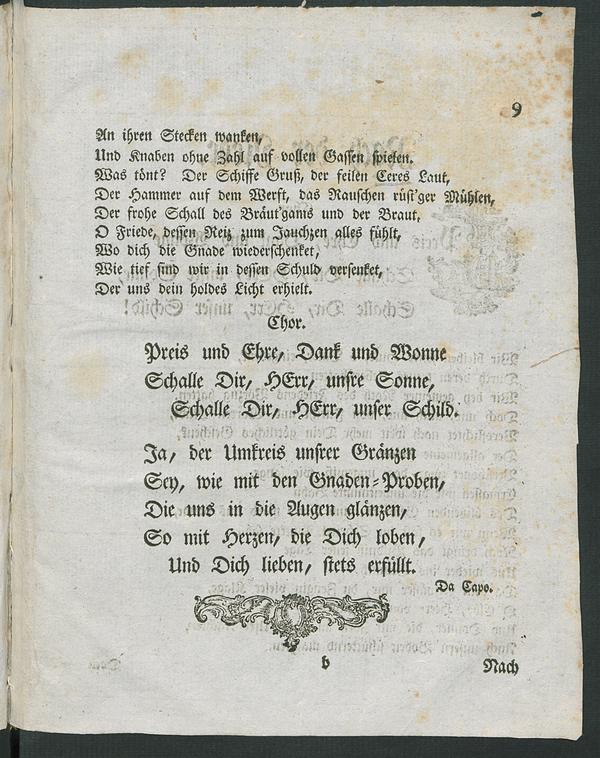 9
An ihren Stecken wanken,
Und Knaben ohne Zahl auf vollen Gassen spielen.
Was tönt? Der Schiffe Gruß, der feilen Ceres Laut,
Der Hammer auf dem Werft, das Rauschen rüst'ger Mühlen,
Der frohe Schall des Bräut'gams und der Braut,
O Friede, dessen Reiz zum Jauchzen alles fühlt,
Wo dich die Gnade wiederschenket,
Wie tief sind wir in dessen Schuld versenket,
Der uns dein holdes Licht erhielt.
Chor.
Preis und Ehre, Dank und Wonne
Schalle Dir, HErr, unsre Sonne,
Schalle Dir, HErr, unser Schild.
Ja, der Umkreis unsrer Gränzen
Sey, wie mit den Gnaden-Proben,
Die uns in die Augen glänzen,
So mit Herzen, die Dich loben,
Und Dich lieben, stets erfüllt.
Da Capo.
b
Nach